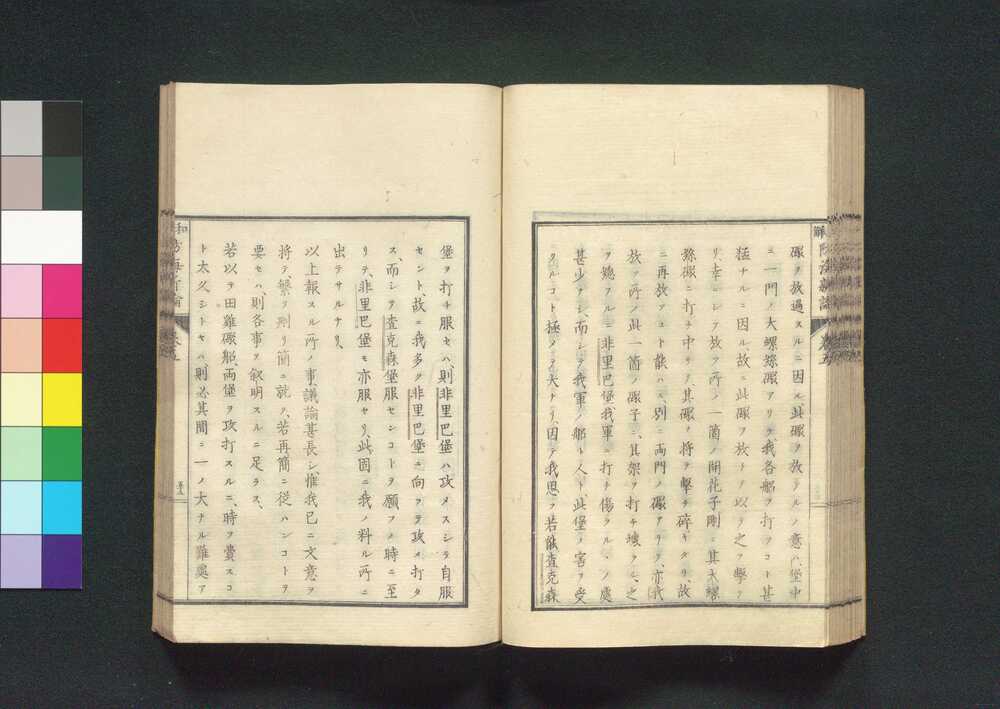 礮ヲ放過スルニ因ル、此礮ヲ放タルノ意ハ、堡中
ニ一門ノ大螺絲礮アリテ、我各船ヲ打ツコト甚
猛ナルニ因ル、故ニ此礮ヲ放ト、以テ之ヲ擊テ
リ、幸ニシテ放ツ所ノ一箇ノ開花子剛ニ其大螺
絲礮ニ打チ中リテ、其礮ノ將ヲ擊チ碎ギタリ、故
ニ再放ツコト能ハス、別ニ兩門ノ礮アリテ、亦我
放ツ所ノ此一箇ノ礮子ニ、其架ヲ打チ壞ラル、之
ヲ總フルニ非里巴堡我軍ニ打チ傷ラル、ノ處
甚少ナシ、而シテ我軍ノ船ト人ト此堡ノ害ヲ受
クルコト極メテ大ナリ、因テ我思フ若能査克森
堡ヲ打チ服セハ、則非里巴堡ハ攻メスシテ自服
セント、故ニ我多ク非里巴堡ニ向ヲテ攻メ打タ
ス、而シテ査克森堡服センコトヲ願フノ時ニ至
リテ、非里巴堡モ亦服セリ、此固ニ我ノ料ル所ニ
出テサルナリ、
以上報スル所ノ事議論甚長シ、惟我已ニ文意ヲ
將テ繁ヲ刪リ簡ニ就ク、若再簡ニ從ハンコトヲ
要セハ、則各事ヲ敘明スルニ足ラス、
若以テ田雞礮船、兩堡ヲ攻打スルニ、時ヲ費スコ
ト太久シトセハ、則必其間ニ一ノ大ナル難奧ア